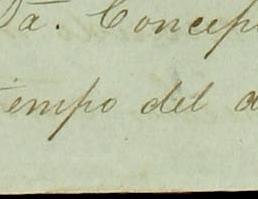 Da. Concep
tiempo del a